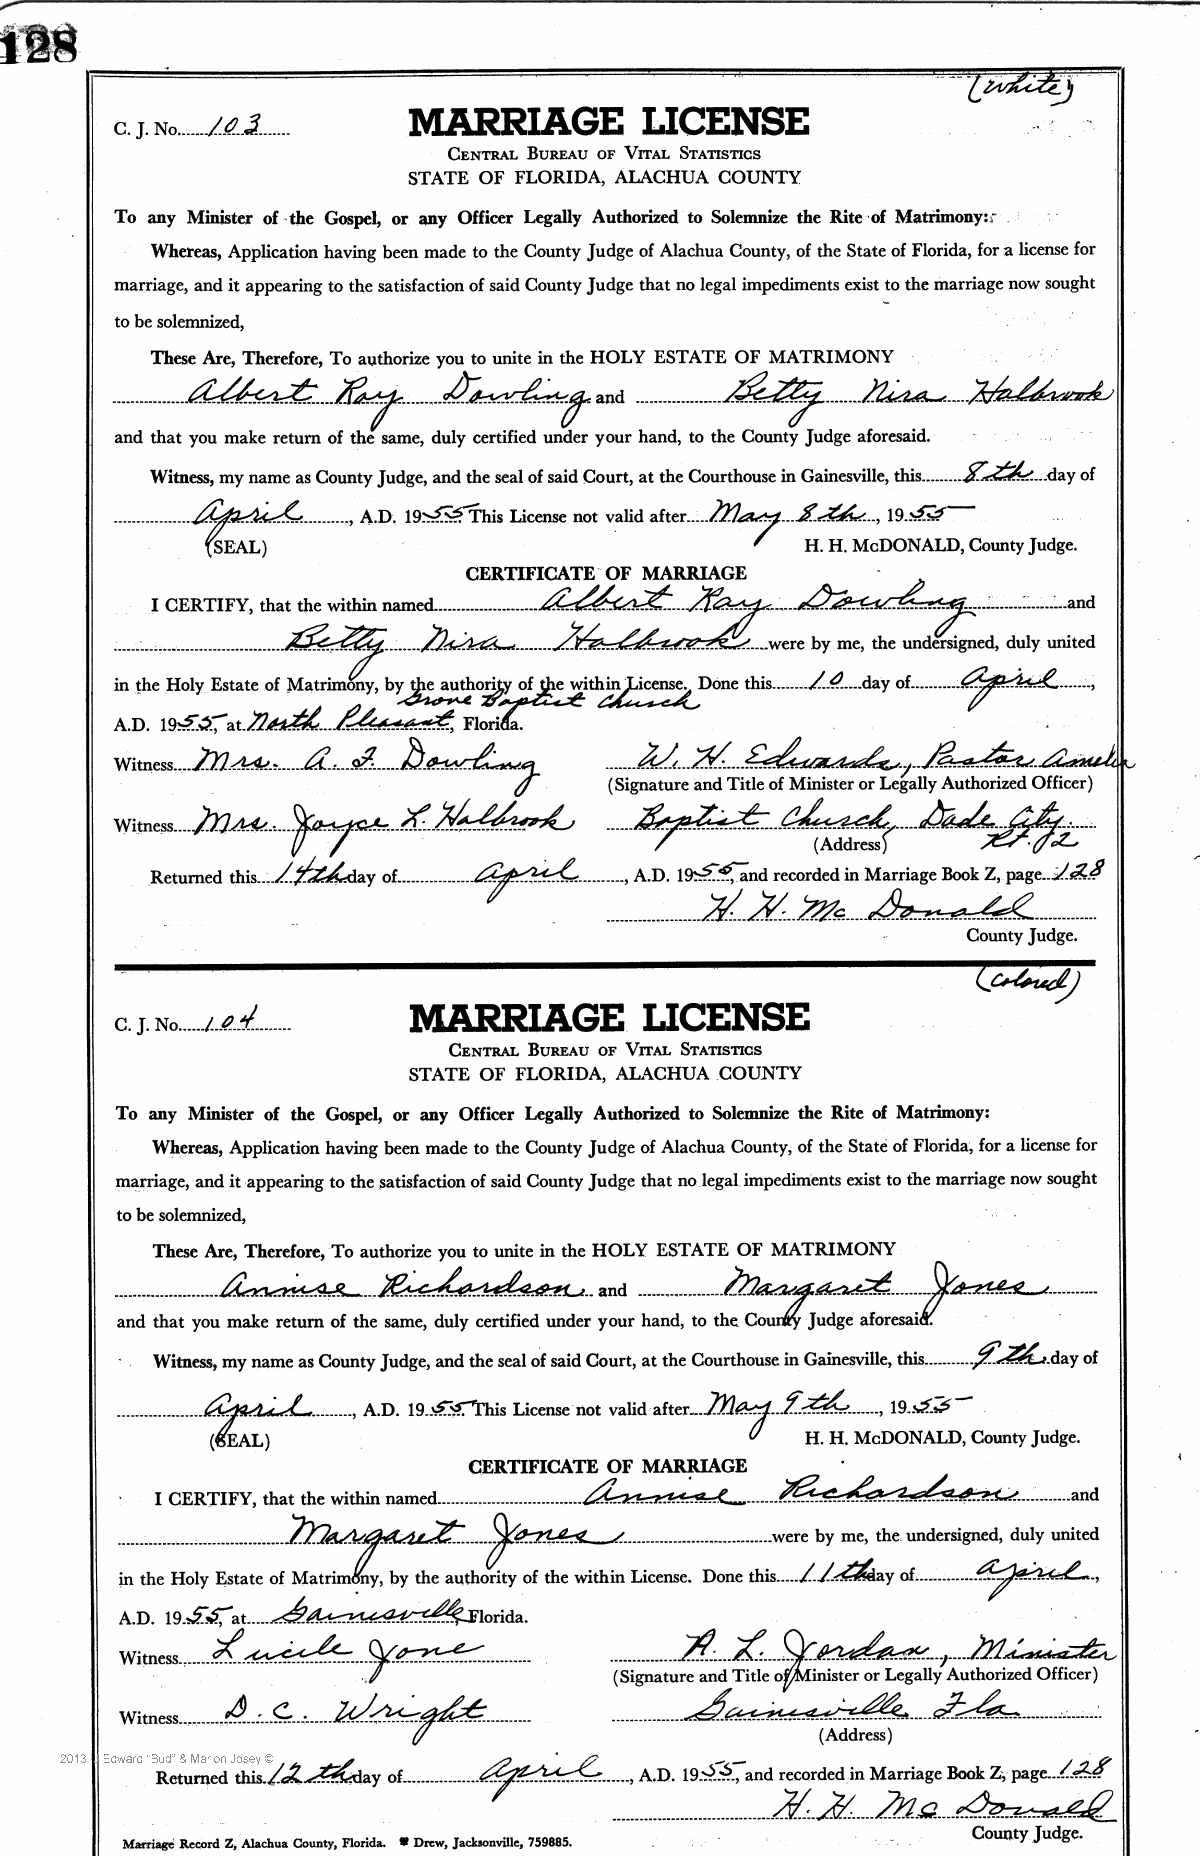 128
(white)
C. J. No. 103
MARRIAGE LICENSE
CENTRAL BUREAU OF VITAL STATISTICS
STATE OF FLORIDA, ALACHUA COUNTY
To any Minister of the Gospel, or any Officer Legally Authorized to Solemnize the Rite of Matrimony:
Whereas, Application having been made to the County Judge of Alachua County, of the State of Florida, for a license for
marriage, and it appearing to the satisfaction of said County Judge that no legal impediments exist to the marriage now sought
to be solemnized,
These Are, Therefore, To authorize you to unite in the HOLY ESTATE OF MATRIMONY
Albert Ray Dowling and Betty Nira Halbrook
and that you make return of the same, duly certified under your hand, to the County Judge aforesaid.
Witness, my name as County Judge, and the seal of said Court, at the Courthouse in Gainesville, this 8th day of
April, A.D. 1955 This License not valid after May 8th, 1955
(SEAL) H. H. McDONALD, County Judge.
CERTIFICATE OF MARRIAGE
I CERTIFY, that the within named Albert Ray Dowling and
Betty Nira Halbrook were by me, the undersigned, duly united
in the Holy Estate of Matrimony, by the authority of the within License. Done this 10 day of April,
Grove Baptist Church
A.D. 1955, at North Pleasant, Florida.
Witness Mrs. A. F. Dowling W. H. Edwards, Pastor Amelia
(Signature and Title of Minister or Legally Authorized Officer)
Witness Mrs. Joyce L. Halbrook Baptist Church, Dade City.
(Address) Rt. 2
Returned this 14th day of April, A.D. 1955, and recorded in Marriage Book Z, page 128
H. H. Mc Donald
County Judge.
(colored)
C. J. No. 104
MARRIAGE LICENSE
CENTRAL BUREAU OF VITAL STATISTICS
STATE OF FLORIDA, ALACHUA COUNTY
To any Minister of the Gospel, or any Officer Legally Authorized to Solemnize the Rite of Matrimony:
Whereas, Application having been made to the County Judge of Alachua County, of the State of Florida, for a license for
marriage, and it appearing to the satisfaction of said County Judge that no legal impediments exist to the marriage now sought
to be solemnized,
These Are, Therefore, To authorize you to unite in the HOLY ESTATE OF MATRIMONY
Annise Richardson and Margaret Jones
and that you make return of the same, duly certified under your hand, to the County Judge aforesaid.
Witness, my name as County Judge, and the seal of said Court, at the Courthouse in Gainesville, this 9th day of
April, A.D. 1955 This License not valid after May 9th, 1955
(SEAL) H. H. McDONALD, County Judge.
CERTIFICATE OF MARRIAGE
I CERTIFY, that the within named Annise Richardson and
Margaret Jones were by me, the undersigned, duly united
in the Holy Estate of Matrimony, by the authority of the within License. Done this 11th day of April,
A.D. 1955, at Gainesville, Florida.
Witness Lucile Jone A. L. Jordan, Minister
(Signature and Title of Minister or Legally Authorized Officer)
Witness D. C. Wright Gainesville Fla
(Address)
2013 Edward "Bud" & Marion Josey ©
Returned this 12th day of April, A.D. 1955, and recorded in Marriage Book Z, page 128
H. H. Mc Donald
County Judge.
Marriage Record Z, Alachua County, Florida. Drew, Jacksonville, 759885.